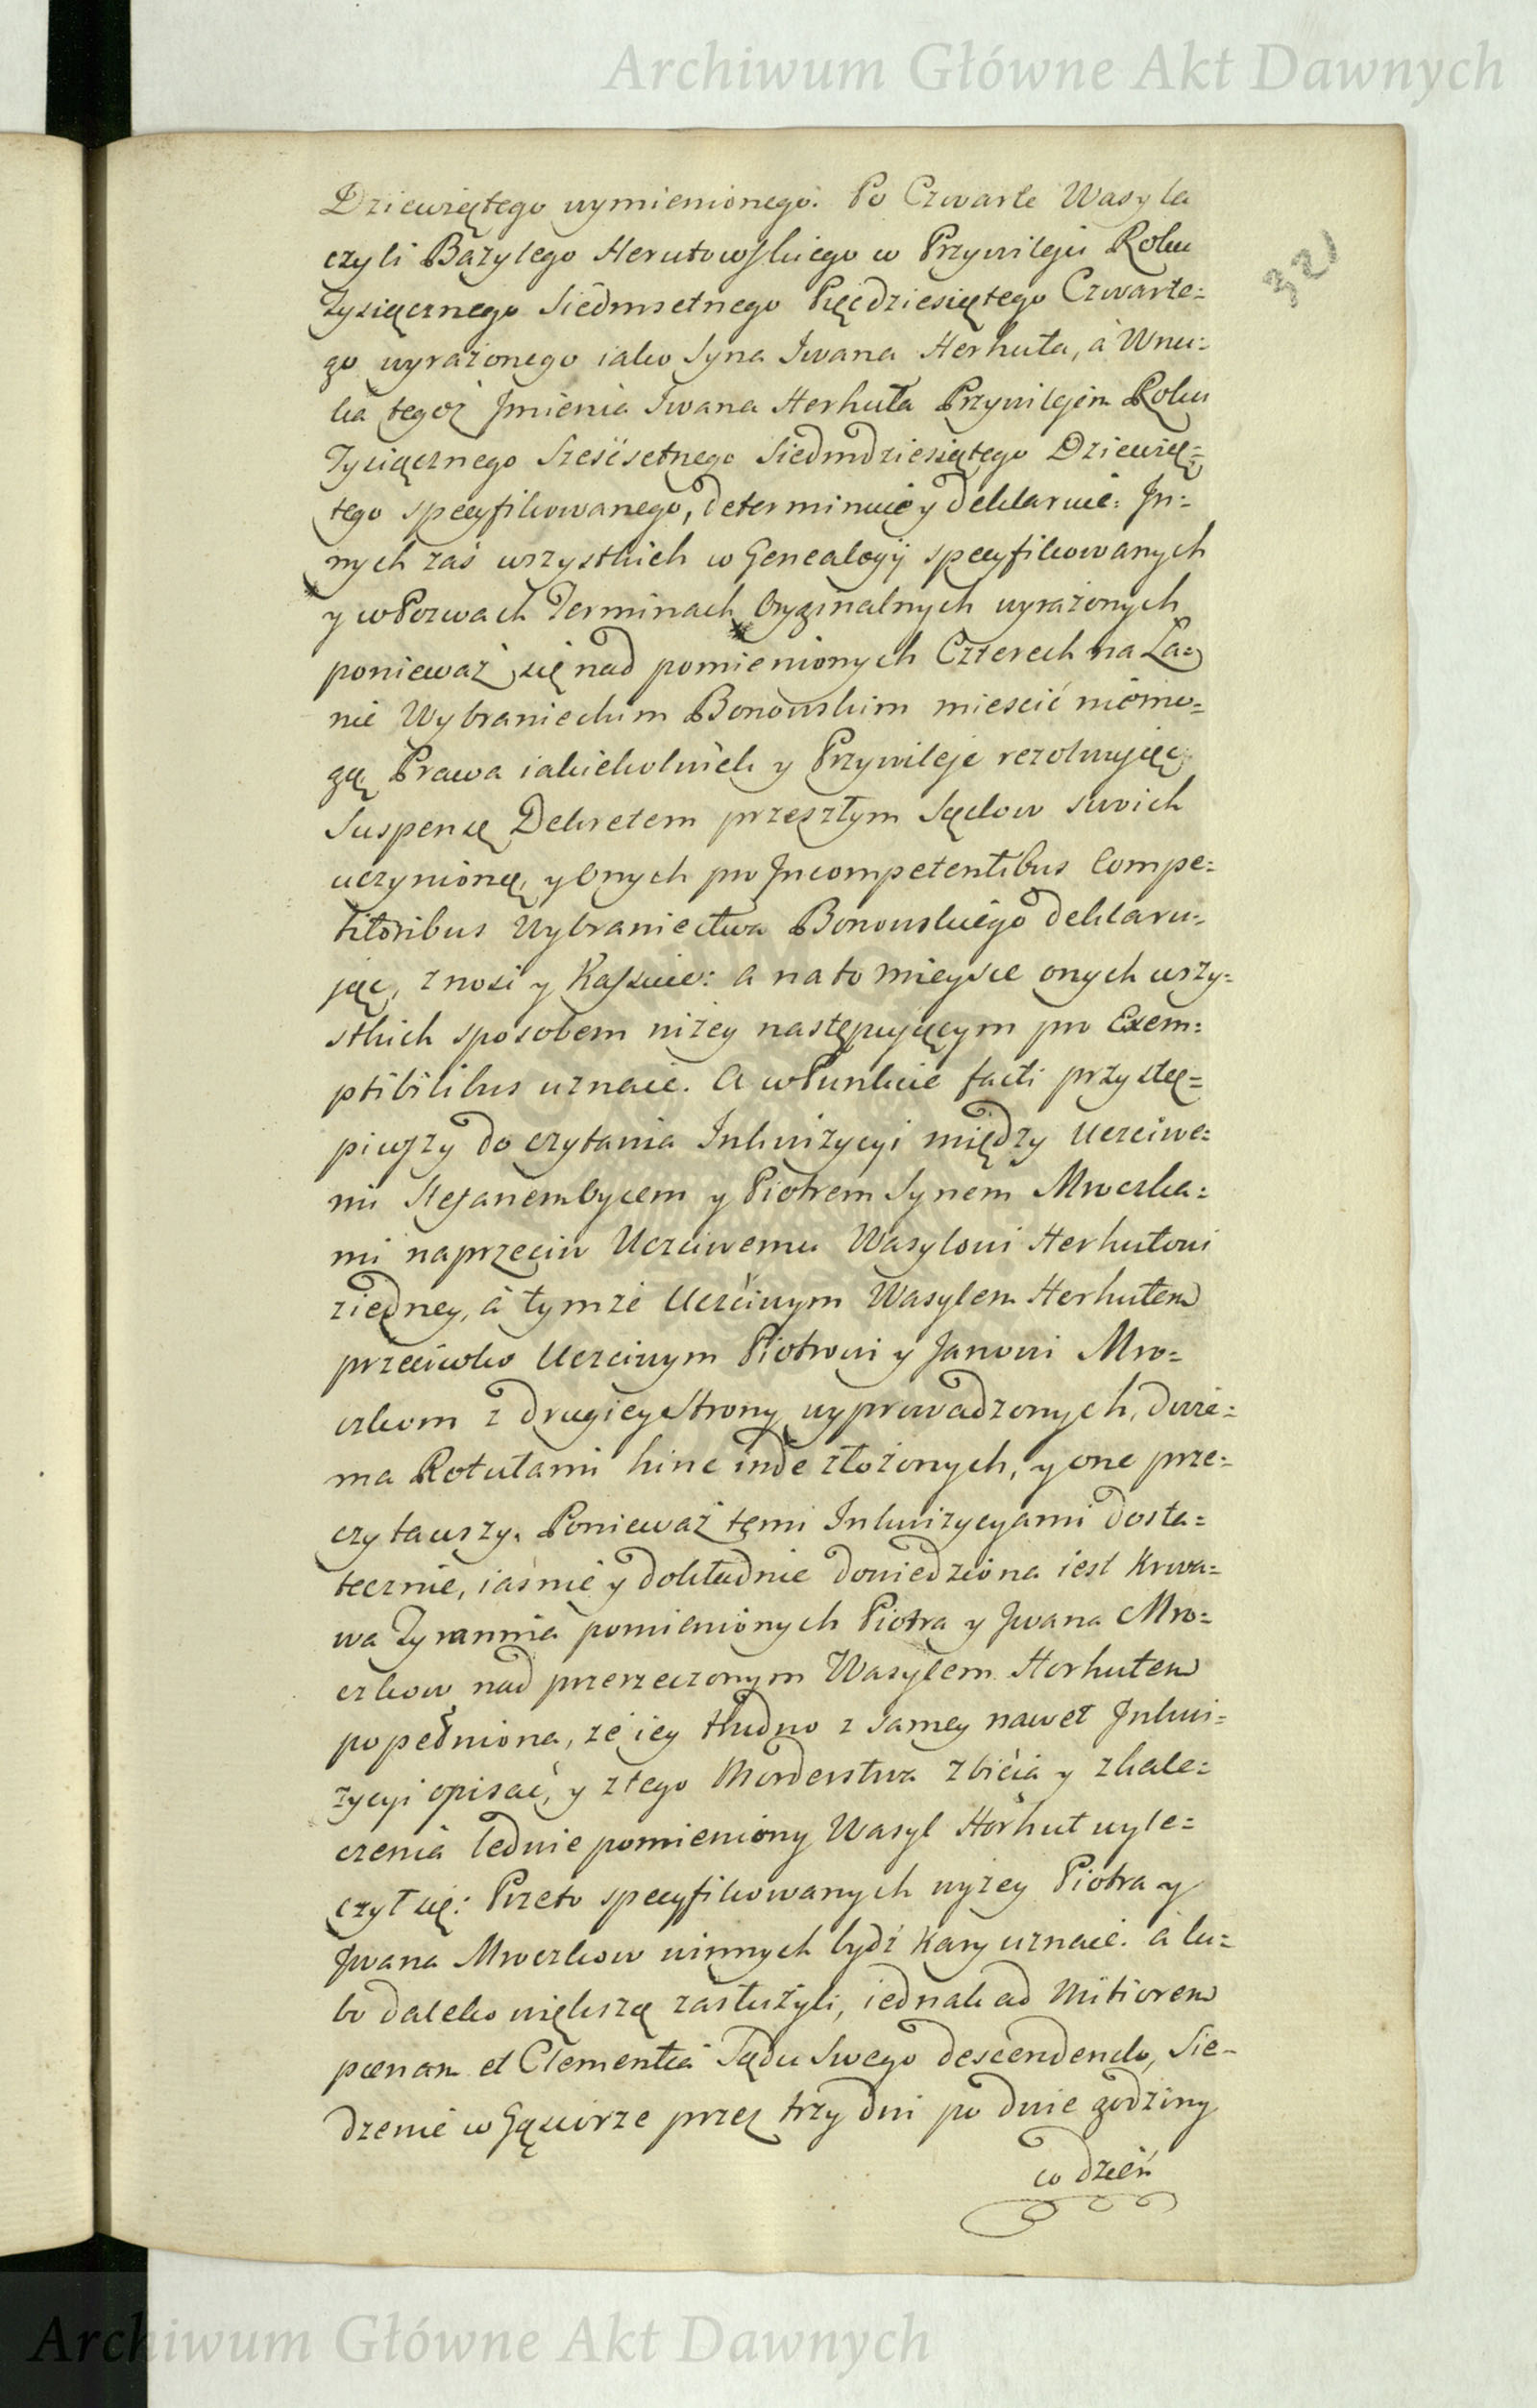 Archiwum Główne Akt Dawnych
321
Dziewiętego wymienionego. Po Czwarte Wasyla
czyli Bazylego Herutowskiego w Przywileju Roku
Tysiącznego Siedmsetnego Pięćdziesiątego Czwarte=
go wyrażonego iako Syna Iwana Herhuta, à Wnu=
ka tegoż Jmienia Iwana Herhuta Przywilejem Roku
Tysiącznego Sześćsetnego Siedmdziesiątego Dziewię=
tego specyfikowanego, determinuie y deklaruie. Jn=
nych zaś wszystkich w Genealogij specyfikowanych
y w Pozwach Terminach Oryginalnych wyrażonych
ponieważ się nad pomienionych Czterech na Ła=
nie Wybranieckim Bonowskim mieścić niemo=
gą Prawa iakiekolwiek y Przywileje rezolwując
Suspensę Dekretem przeszłym Sądow swoich
uczynioną, y Onych pro Jncompetentibus Compe=
titoribus Wybraniectwa Bonowskiego deklaru=
jąc, znosi y Kassuie: a na to mieysce onych wszy=
stkich sposobem niżey następującym pro Exem=
ptibilibus uznaie. A w Punkcie facti przystę=
piwszy do czytania Inkwizycyi między Uczciwe=
mi Stefanem Oycem y Piotrem Synem Mroczka=
mi naprzeciw Uczciwemu Wasylowi Herhutowi
ziedney, à tymże Uczciwym Wasylem Herhutem
przeciwko Uczciwym Piotrowi y Janowi Mro=
czkom z drugiey Strony wyprowadzonych, dwie=
ma Rotułami hinc inde złożonych, y one prze=
czytawszy. Ponieważ temi Inkwizycyami dosta=
tecznie, iaśnie y dokładnie dowiedziona iest Krwa=
wa Tyrannia pomienionych Piotra y Jwana Mro=
czkow nad przerzeczonym Wasylem Horhutem
popełniona, że iey trudno z samey nawet Jnkwi=
zycyi opisać, y z tego Morderstwa zbicia y zkale=
czenia ledwie pomieniony Wasyl Horhut wyle=
czył się: Przeto specyfikowanych wyżey Piotra y
Jwana Mroczkow winnych bydź Kary uznaie. à lu=
bo daleko większą zasłużyli, iednak ad Mitiorem
pœnam et Clementia Sądu Swego descendendo, Sie=
dzenie w Gąsiorze przez trzy dni po dwie godziny
co dzień
Archiwum Główne Akt Dawnych